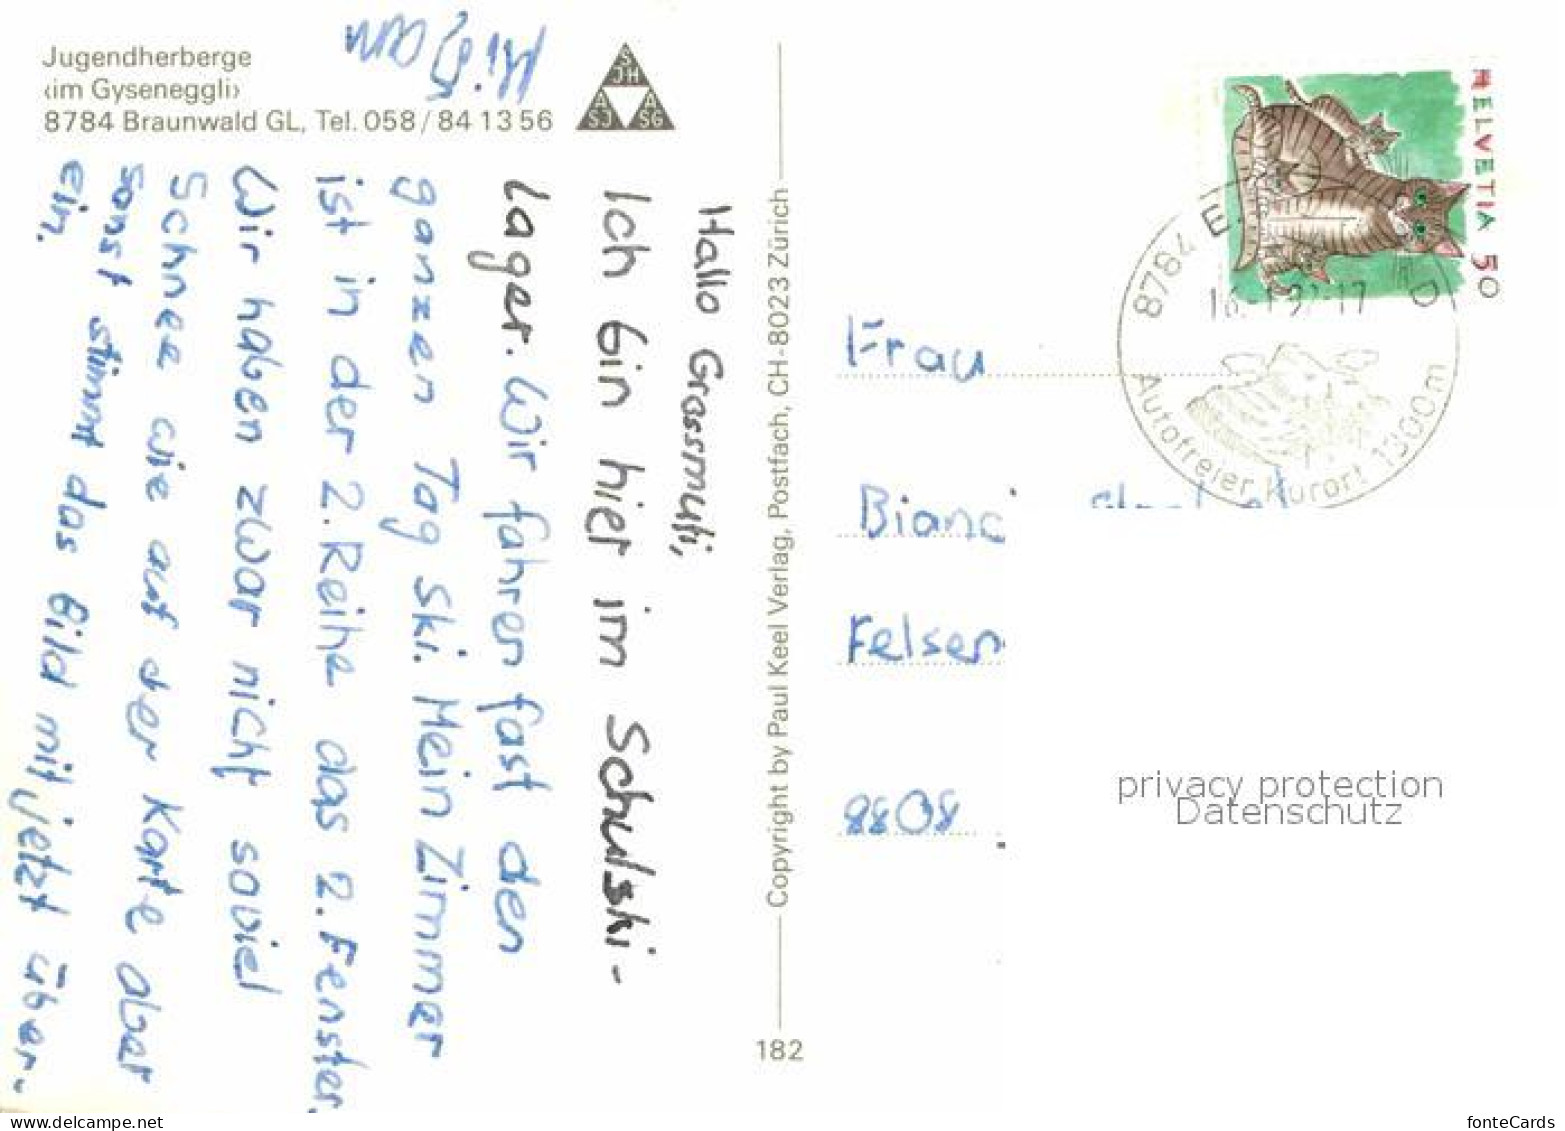 Jugendherberge
‹im Gyseneggli›
8784 Braunwald GL, Tel. 058/84 13 56
S
JH
A
SJ
A
SG
Hallo Grossmuti,
Ich bin hier im Schulski-
lager. Wir fahren fast den
ganzen Tag Ski. Mein Zimmer
ist in der 2. Reihe das 2. Fenster.
Wir haben zwar nicht soviel
Schnee wie auf der Karte aber
sonst stimmt das Bild mit jetzt über-
ein.
Copyright by Paul Keel Verlag, Postfach, CH-8023 Zürich
182
HELVETIA 50
8784
Autofreier Kurort 1300m
Frau
Felsen
8808
privacy protection
Datenschutz
www.delcampe.net
fonteCards